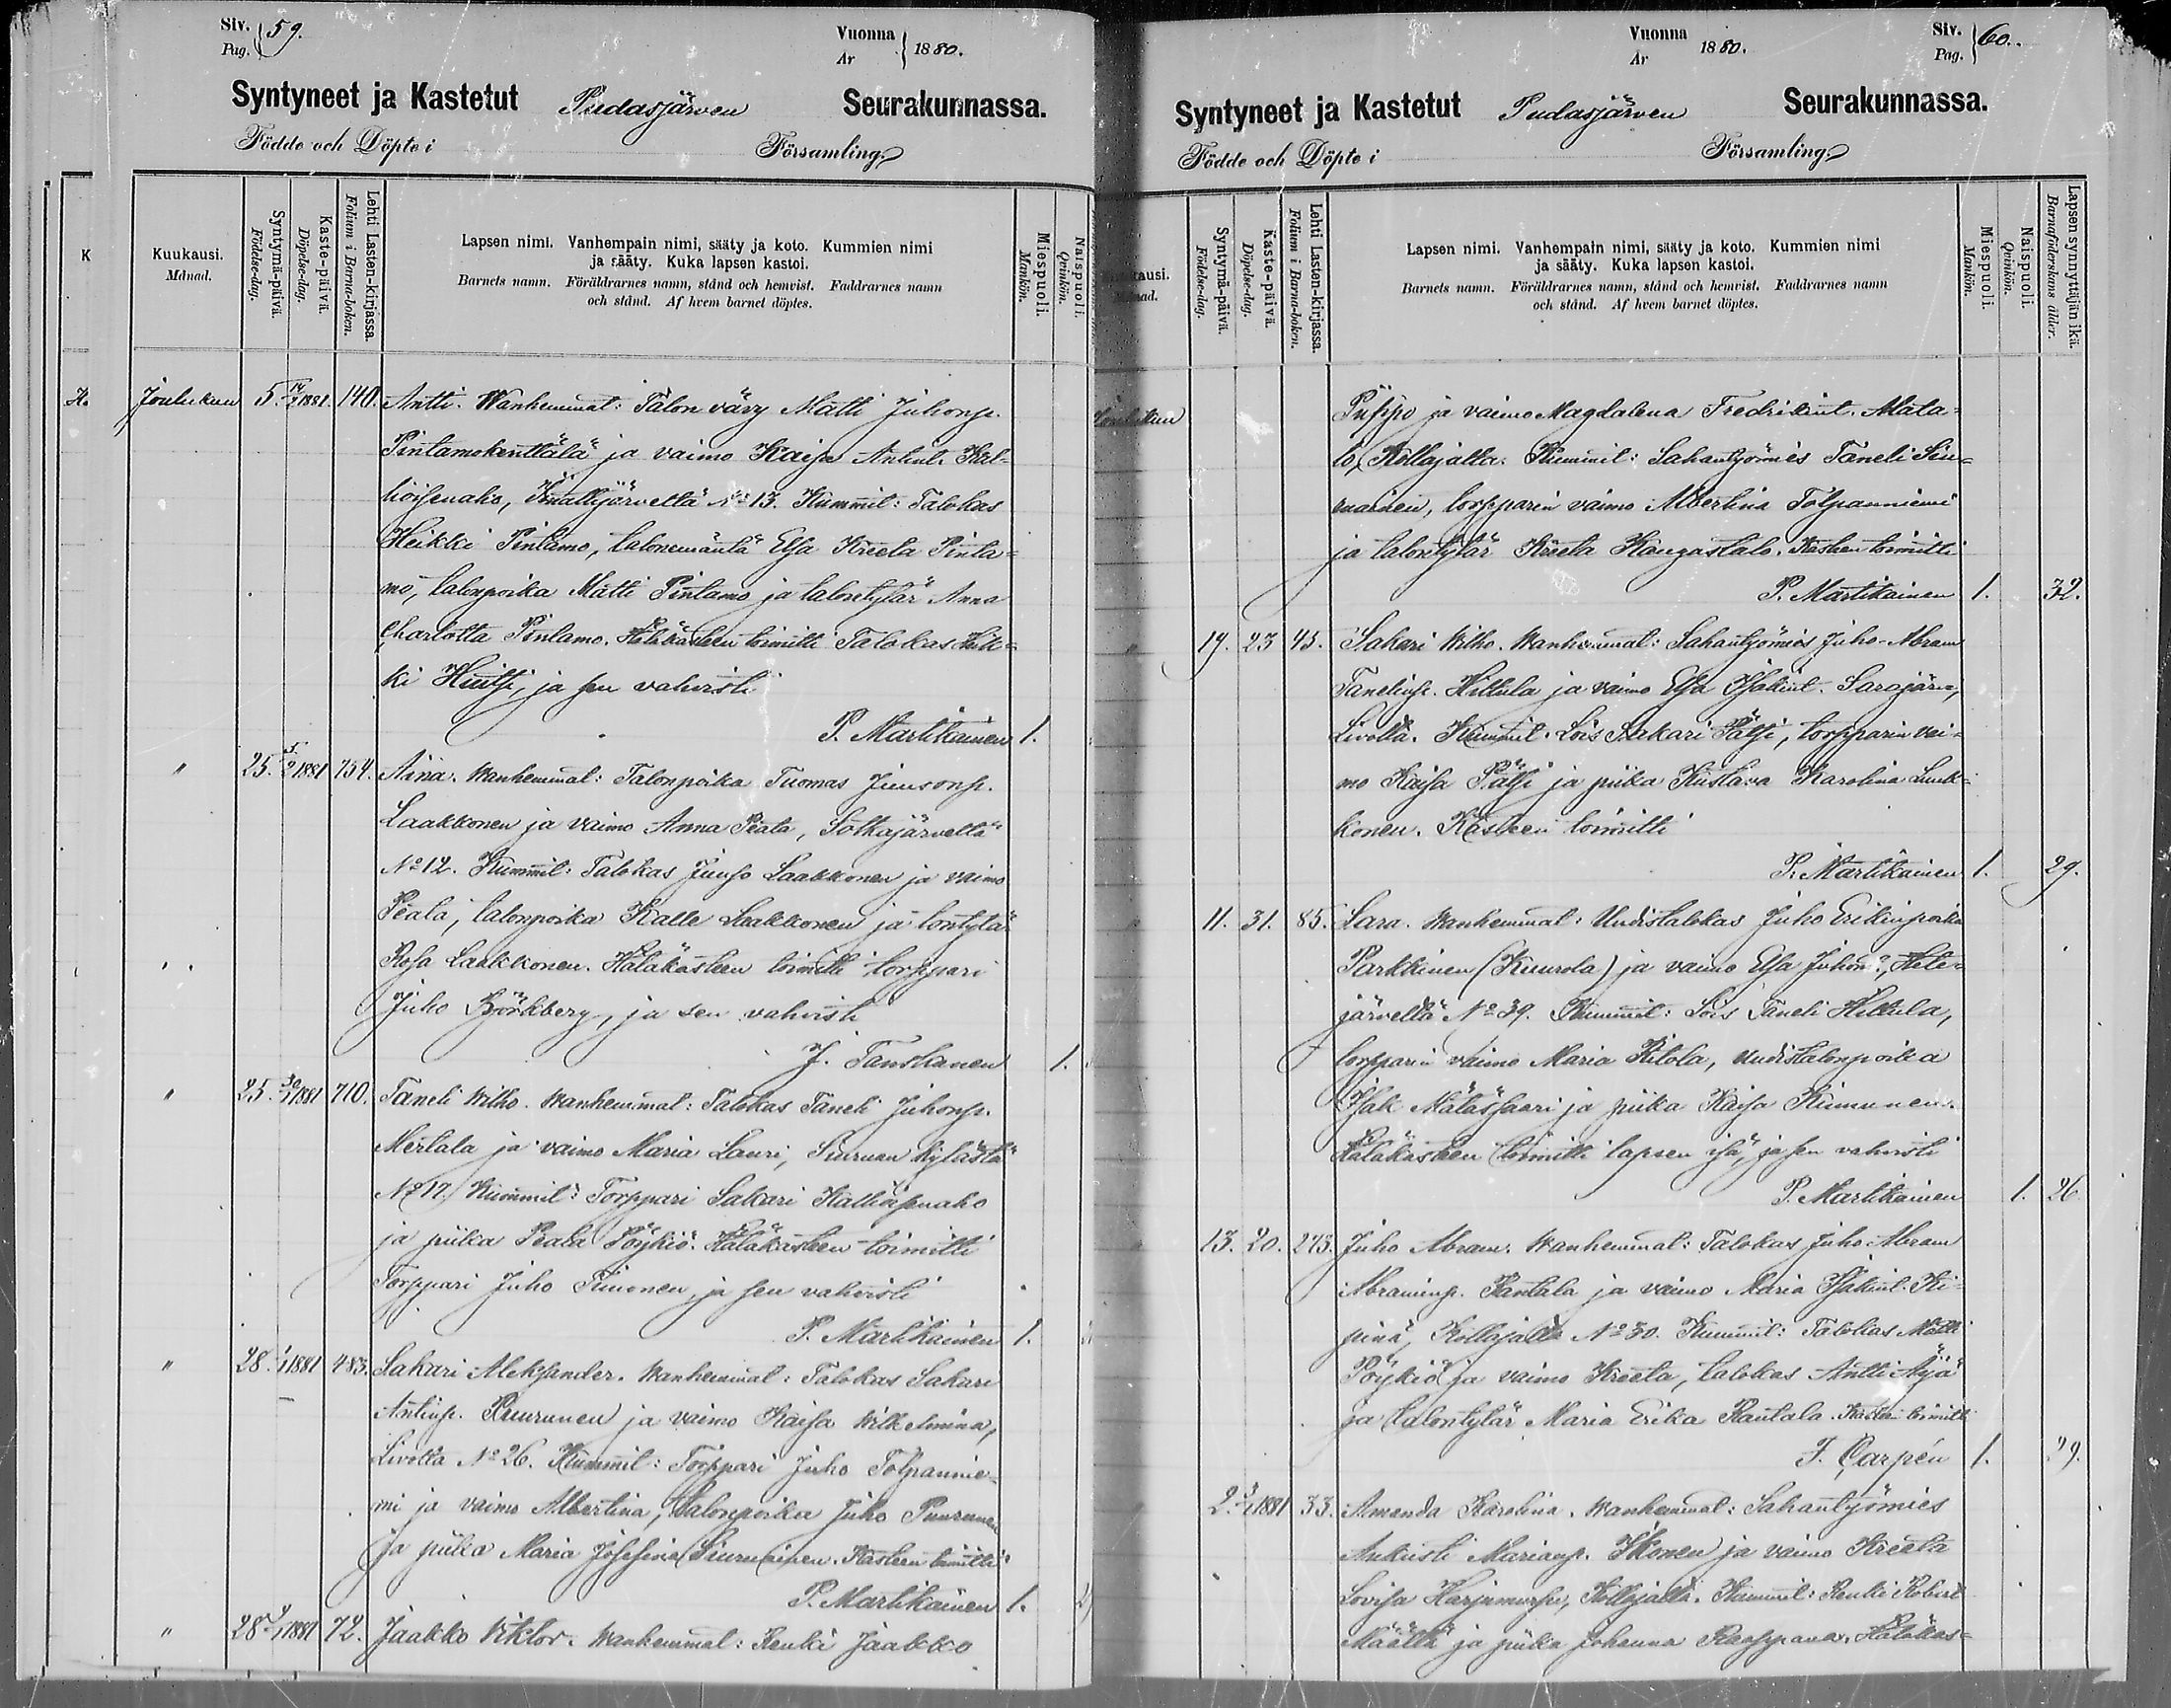 Siv. 59.
Pag.
Vuonna
År 1880.
Syntyneet ja Kastetut Pudasjärven Seurakunnassa.
Födde och Döpte i Församling.
K
Kuukausi.
Månad.
Syntymä-päivä.
Födelse-dag.
Kaste-päivä.
Döpelse-dag.
Lehti Lasten-kirjassa.
Folium i Barna-boken.
Lapsen nimi. Vanhempain nimi, sääty ja koto. Kummien nimi
ja sääty. Kuka lapsen kastoi.
Barnets namn. Föräldrarnes namn, stånd och hemvist. Faddrarnes namn
och stånd. Af hvem barnet döptes.
Miespuoli.
Mankön.
Naispuoli.
Qvinkön.
Joulukuu 5. 1881. 140. Antti. Wanhemmat: Talon vävy Matti Juhonp.
Pintamokenttälä ja vaimo Kaisa Antint. Kal-
lioisenaho, No 13. Kummit: Talokas
Heikki Pintamo, talonemäntä Elsa Kreeta Pinta=
mo, talonpoika Matti Pintamo ja talontytär Anna
Charlotta Pintamo. Hätäkasteen toimitti Talokas Heik=
ki ja sen vahvisti
P. Martikainen 1.
" 25. 5/2 1881 754. Aina. Wanhemmat: Talonpoika Tuomas Juusonp.
Laakkonen ja vaimo Anna Peata, Sotkajärveltä
No 12. Kummit: Talokas Juuso Laakkonen ja vaimo
Peata, talonpoika Kalle Laakkonen ja tontytär
Rosa Laakkonen. Hätäkasteen toimitti torppari
Juho Björkberg, ja sen vahvisti
J. Tanskanen 1.
" 25. 1881 710. Taneli Wilho. Wanhemmat: Talokas Taneli Juhonp.
Mertala ja vaimo Maria Lauri, Siuruan kylästä
No 17. Kummit: Torppari Sakari Kallioisenaho
ja piika Peata Pöykiö. Hätäkasteen toimitti
Torppari Juho Timonen, ja sen vahvisti
P. Martikainen 1.
" 28. 1/1 1881 483. Sakari Aleksander. Wanhemmat: Talokas Sakari
Antinp. Puurunen ja vaimo Kaisa Wilhelmina,
Livolta No 26. Kummit: Torppari Juho Tolpannie-
mi ja vaimo Albertina, talonpoika Juho Puurunen
ja piika Maria Josefina Siurnainen. Kasteen toimitti
P. Martikainen 1.
" 28 1881 72. Jaakko Viktor. Wanhemmat: Renki Jaakko
Vuonna
År 1880.
Siv. 60.
Pag.
Syntyneet ja Kastetut Pudasjärven Seurakunnassa.
Födde och Döpte i Församling.
Syntymä-päivä.
Födelse-dag.
Kaste-päivä.
Döpelse-dag.
Lehti Lasten-kirjassa.
Folium i Barna-boken.
Lapsen nimi. Vanhempain nimi, sääty ja koto. Kummien nimi
ja sääty. Kuka lapsen kastoi.
Barnets namn. Föräldrarnes namn, stånd och hemvist. Faddrarnes namn
och stånd. Af hvem barnet döptes.
Miespuoli.
Mankön.
Naispuoli.
Qvinkön.
Lapsen synnyttäjän ikä.
Barnaföderskans ålder.
ja vaimo Magdalena Fredrikint. Mata=
lo, Kollajalta. Kummit: Sahantyömies Taneli Siu=
nainen, torpparin vaimo Albertina Tolpanniemi
ja talontytär Kreeta Kangastalo. Kasteen toimitti
P. Martikainen 1. 32.
19. 23 45. Sakari Wilho. Wanhemmat: Sahantyömies Juho-Abram
Tanelinp. Hiltula ja vaimo Elsa Isakint. Sarajärvi,
Livolta. Kummit: Lois Sakari Pätsi, torpparin vai=
mo Kaisa Pätsi ja piika Kustava Karolina Luuk=
konen. Kasteen toimitti
P. Martikainen 1. 29.
11. 31. 85. Sara. Wanhemmat: Uudistalokas Juho Erikinpoika
Parkkinen (Kuurola) ja vaimo Elsa Hete=
järveltä No 39. Kummit: Lois Taneli Hiltula,
torpparin vaimo Maria Ritola, uudistalonpoika
Isak Mätässaari ja piika Kaisa Kinnunen.
Hätäkasteen toimitti lapsen isä, ja sen vahvisti
P. Martikainen 1. 26
13. 20. 273. Juho Abram. Wanhemmat: Talokas Juho-Abram
Abraminp. Rantala ja vaimo Maria Isakint. Ki=
pinä, Kollajalta No 30. Kummit: Talokas Matti
Pöykiö ja vaimo Kreeta, talokas Antti Äijä
ja talontytär Maria Erika Rautala. Kasteen toimitti
F. Carpén 1. 29.
2. 1881 33. Amanda Karolina. Wanhemmat: Sahantyömies
Aukusti Marianp. Ikonen ja vaimo Kreeta
Lovisa Kollajalta. Kummit: Renki Robert
Määttä ja piika Johanna Hätäkas=